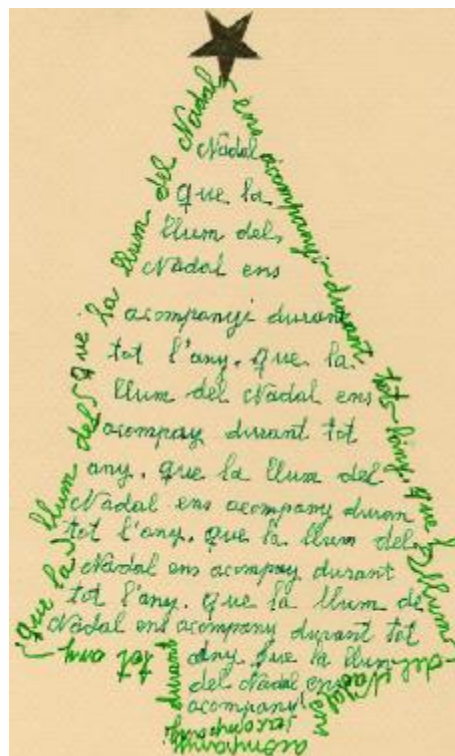 Que la llum dels Que la llum del Nadal
ens acompanyi durant tots l'any. que la llum
del Nadal ens
acompanyi
durant
tot any
Nadal
que la
llum dels
Nadal ens
acompanyi durant
tot l'any. que la
llum del Nadal ens
acompay durant tot
any. que la llum del
Nadal ens acompany duram
tot l'any. que la llum del
Nadal ens acompay durant
tot l'any. que la llum de
Nadal ens acompany durant tot
any. que la llum
del Nadal ens
acompany